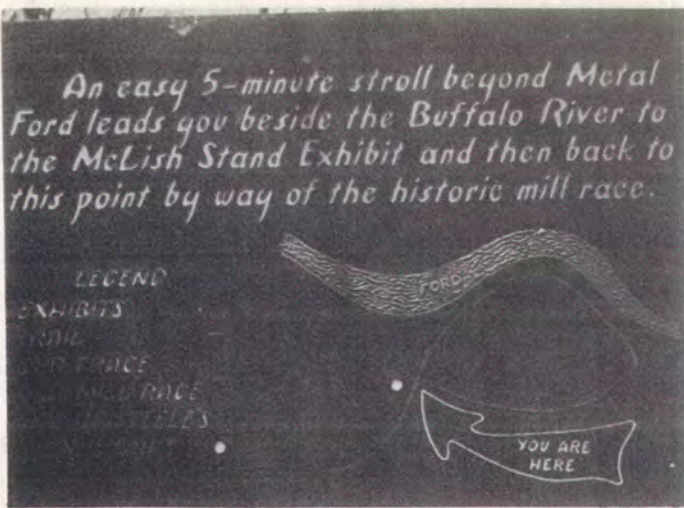 An easy 5-minute stroll beyond Metal
Ford leads you beside the Buffalo River to
the McLish Stand Exhibit and then back to
this point by way of the historic mill race.
LEGEND
EXHIBITS
FORD
RACE
RACE
YOU ARE
HERE